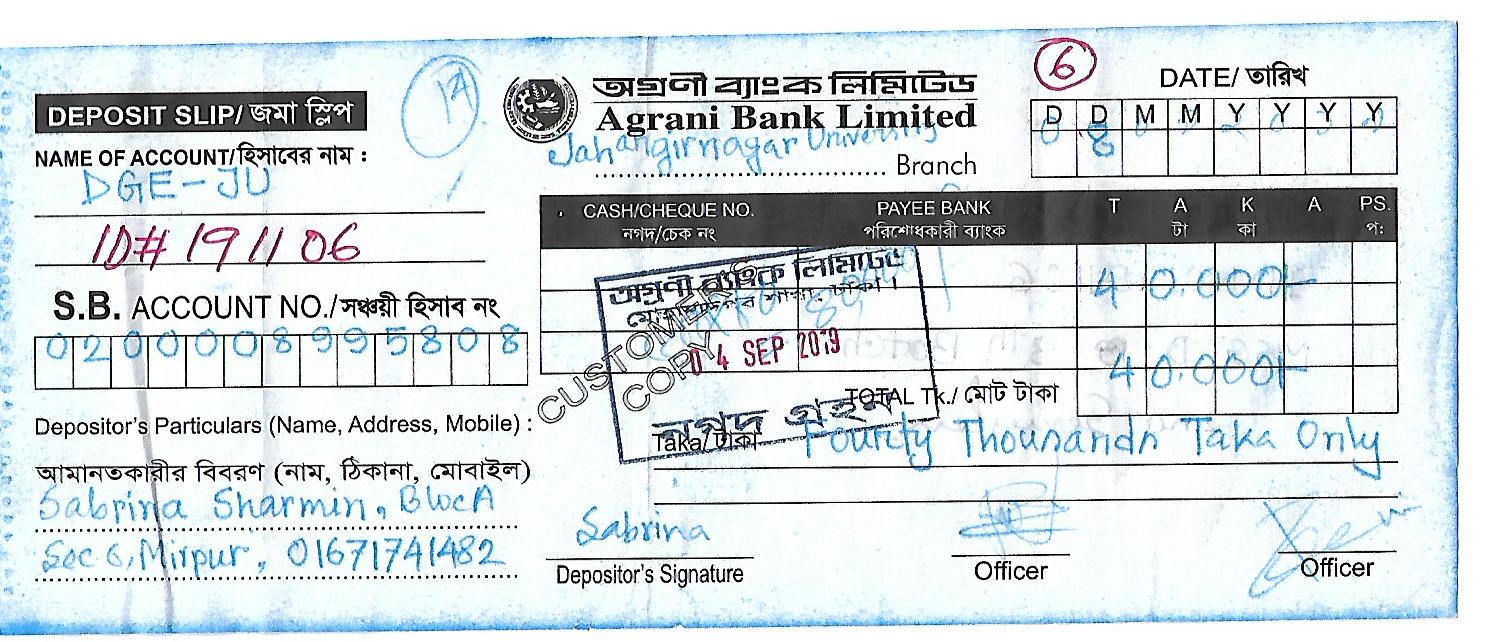 DEPOSIT SLIP/ জমা স্লিপ
NAME OF ACCOUNT/হিসাবের নাম :
DGE-JU
ID# 191106
S.B. ACCOUNT NO./সঞ্চয়ী হিসাব নং
0200008995808
Depositor's Particulars (Name, Address, Mobile) :
আমানতকারীর বিবরণ (নাম, ঠিকানা, মোবাইল)
Sabrina Sharmin, BlocA
Sec 6, Mirpur, 01671741482
অগ্রণী ব্যাংক লিমিটেড
Agrani Bank Limited
Jahangirnagar University
Branch
6
DATE/ তারিখ
D D M M Y Y Y Y
CASH/CHEQUE NO. PAYEE BANK T A K A PS.
নগদ/চেক নং পরিশোধকারী ব্যাংক টা কা প:
40.000/-
অগ্রণী ব্যাংক লিমিটেড
CUSTOMER COPY
04 SEP 2019
নগদ গ্রহন
40.000/-
TOTAL Tk./ মোট টাকা
Taka/টাকা Fourty Thousandn Taka Only
Sabrina
Depositor's Signature
Officer
Officer